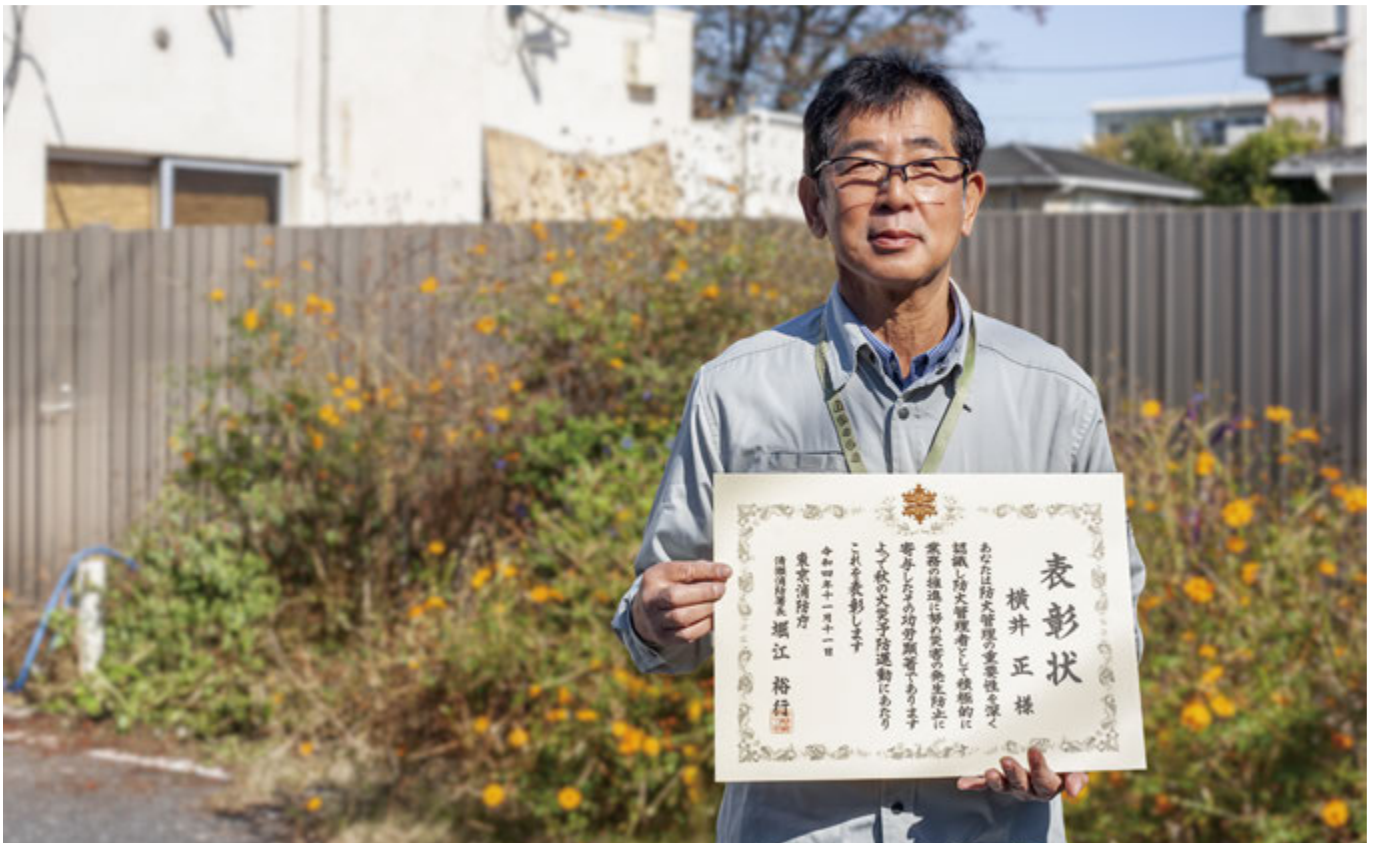 表彰状
横井 正 様
あなたは防火管理の重要性を深く
認識し防火管理者として積極的に
業務の推進に努め災害の発生防止に
寄与したその功労顕著であります
よって秋の火災予防運動にあたり
これを表彰します
令和四年十一月十一日
東京消防庁
清瀬消防署長 堀江 裕行